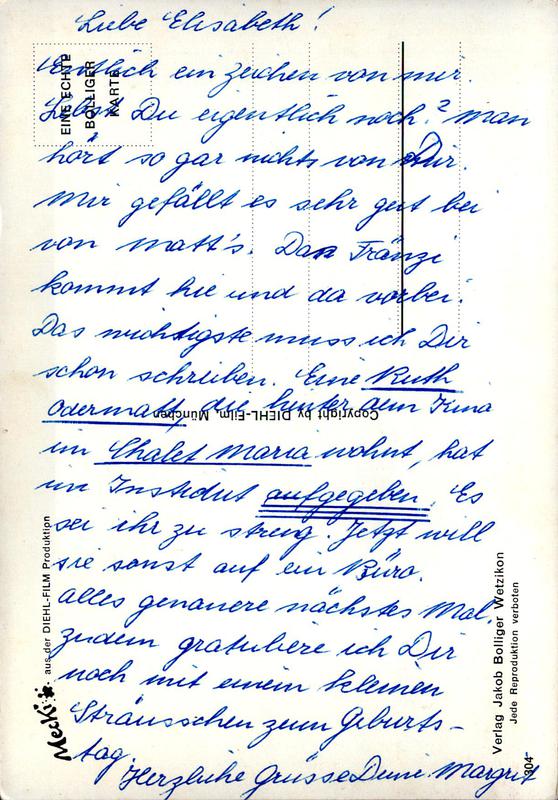 Liebe Elisabeth!
Entlich ein zeichen von mir.
Lebst Du eigentlich noch? Man
hört so gar nichts von Dir.
Mir gefällt es sehr gut bei
von Matt's. Das Fränzi
kommt hie und da vorbei.
Das wichtigste muss ich Dir
schon schreiben. Eine Ruth
Odermatt, die hinter dem Kino
im Chalet Maria wohnt, hat
im Institut aufgegeben. Es
sei ihr zu streng. Jetzt will
sie sonst auf ein Büro.
alles genauere nächstes Mal.
Zudem gratuliere ich Dir
noch mit einem kleinen
Sträusschen zum Geburts-
tag.
Herzliche Grüsse Deine Margrit
EINE ECHTE
BOLLIGER
KARTE
Copyright by DIEHL-Film, München
Mecki
aus der DIEHL-FILM Produktion
Verlag Jakob Bolliger Wetzikon
Jede Reproduktion verboten
304